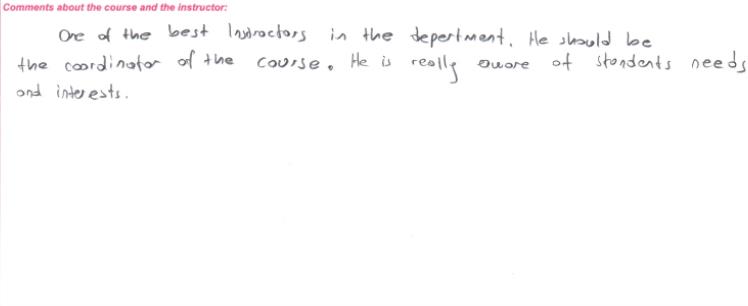 Comments about the course and the instructor:
One of the best Instroctors in the depertment. He should be
the coordinator of the course. He is really aware of stondents needs
and interests.